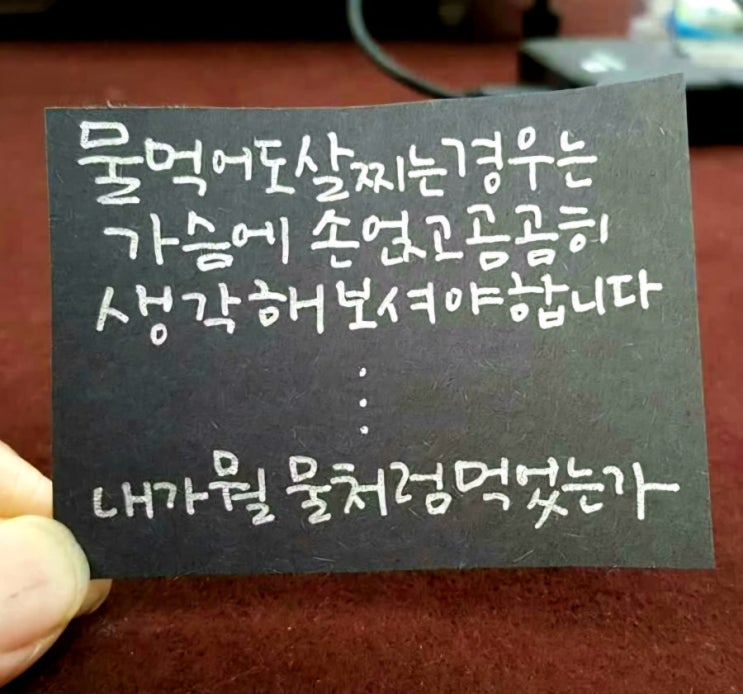 물먹어도살찌는경우는
가슴에 손얹고곰곰히
생각해보셔야합니다
⋮
내가뭘 물처럼먹었는가